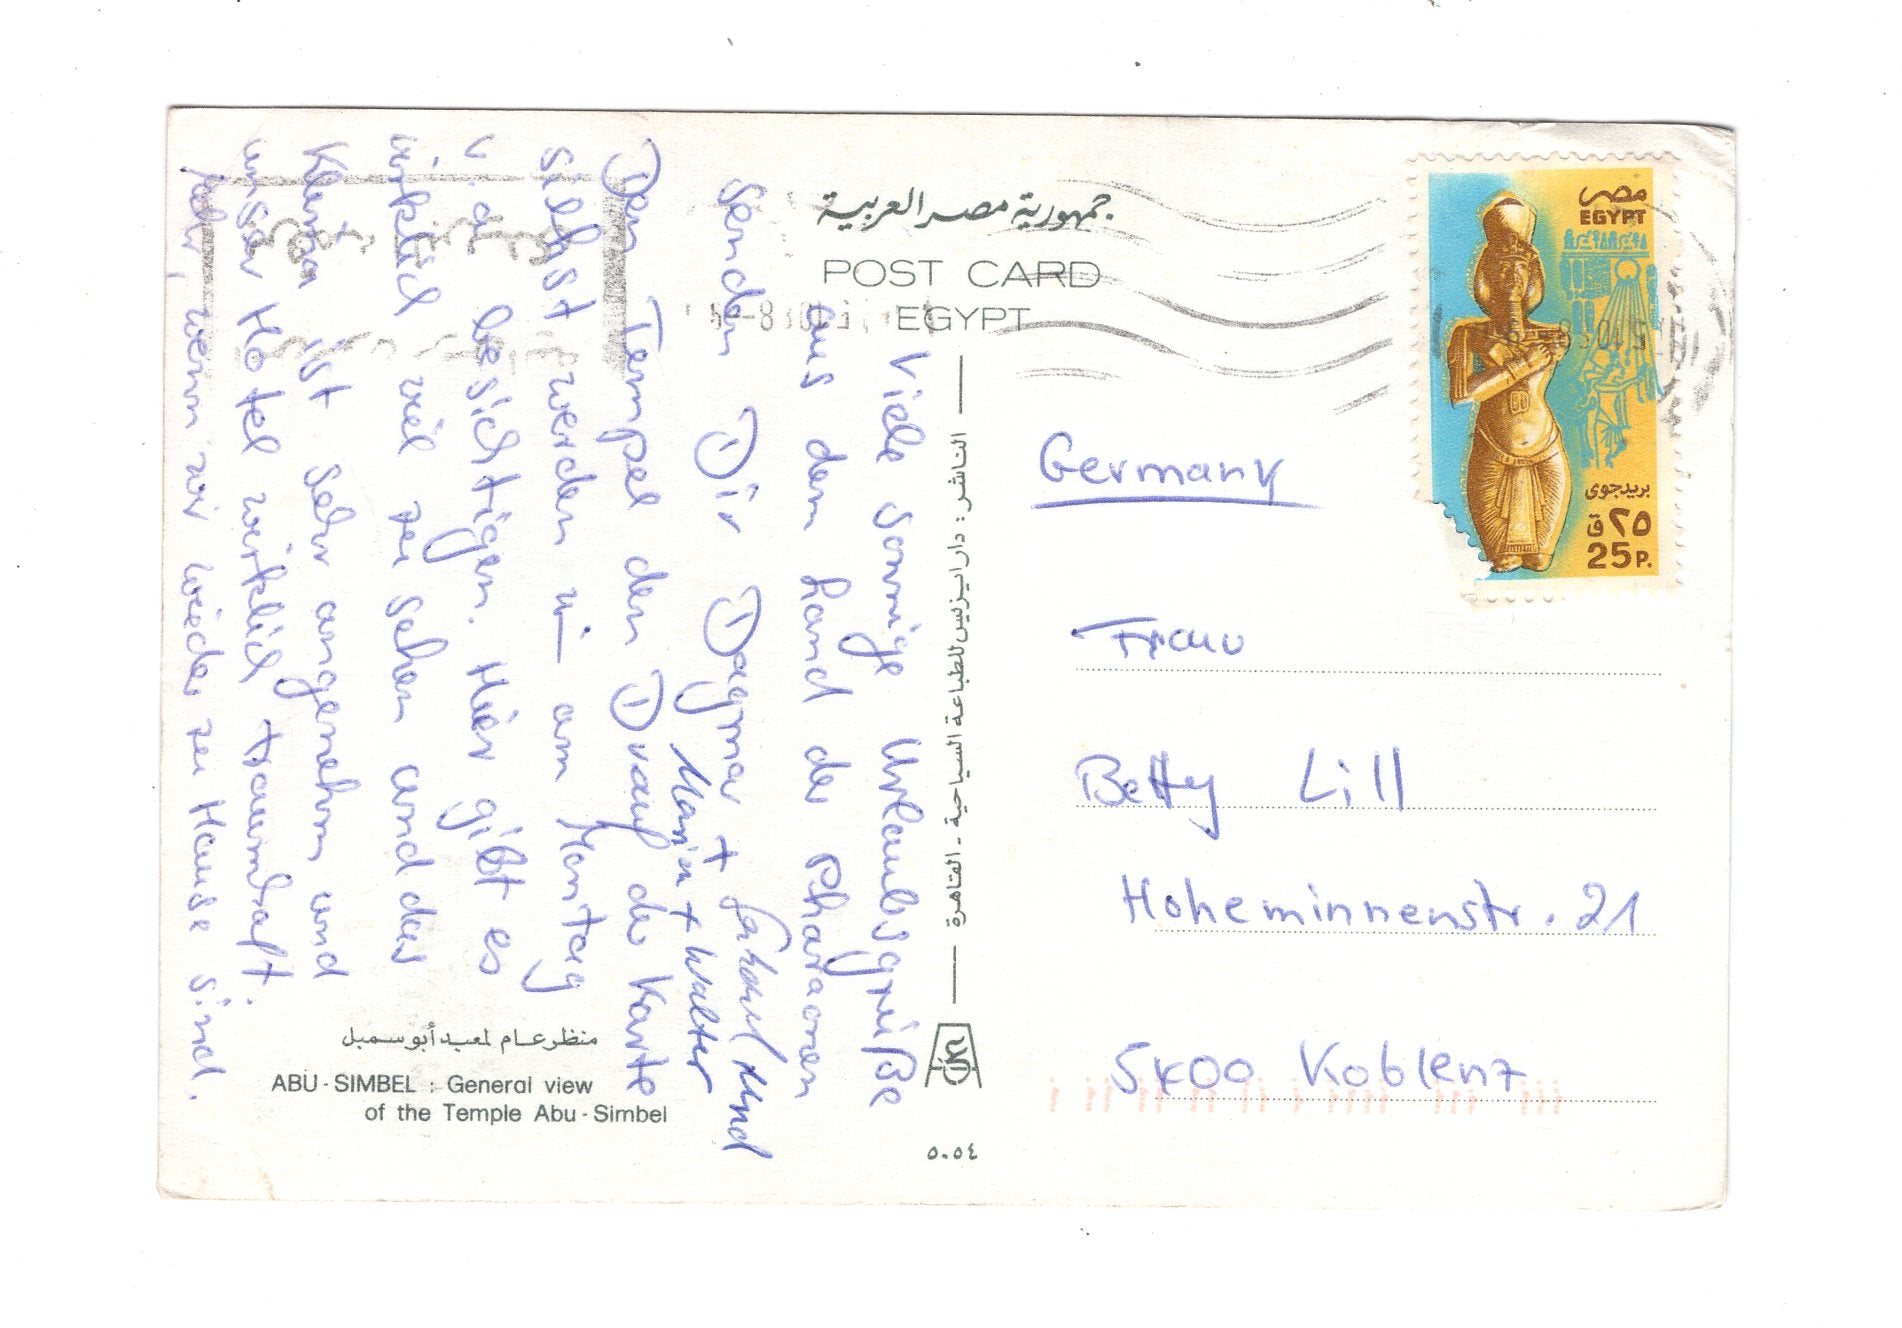 جمهورية مصر العربية
POST CARD
EGYPT
مصر
EGYPT
بريد جوى
٢٥ ق
25 P.
Viele Sonnige Urlaubsgrüße
aus dem Land der Pharaonen
senden Dir Dagmar +
Marin + Walter
Den Tempel den Drauf der Karte
selbst werden wir am Montag
besichtigen. Hier gibt es
wirklich viel zu sehen und das
Klima ist sehr angenehm und
unser Hotel wirklich traumhaft.
wenn wir wieder zu Hause sind.
الناشر : دار ايزيس للطباعة السياحية - القاهرة
Germany
Frau
Betty Lill
Hoheminnenstr. 21
5400 Koblenz
منظر عام لمعبد أبو سمبل
ABU - SIMBEL : General view
of the Temple Abu - Simbel
٥٠٥٤